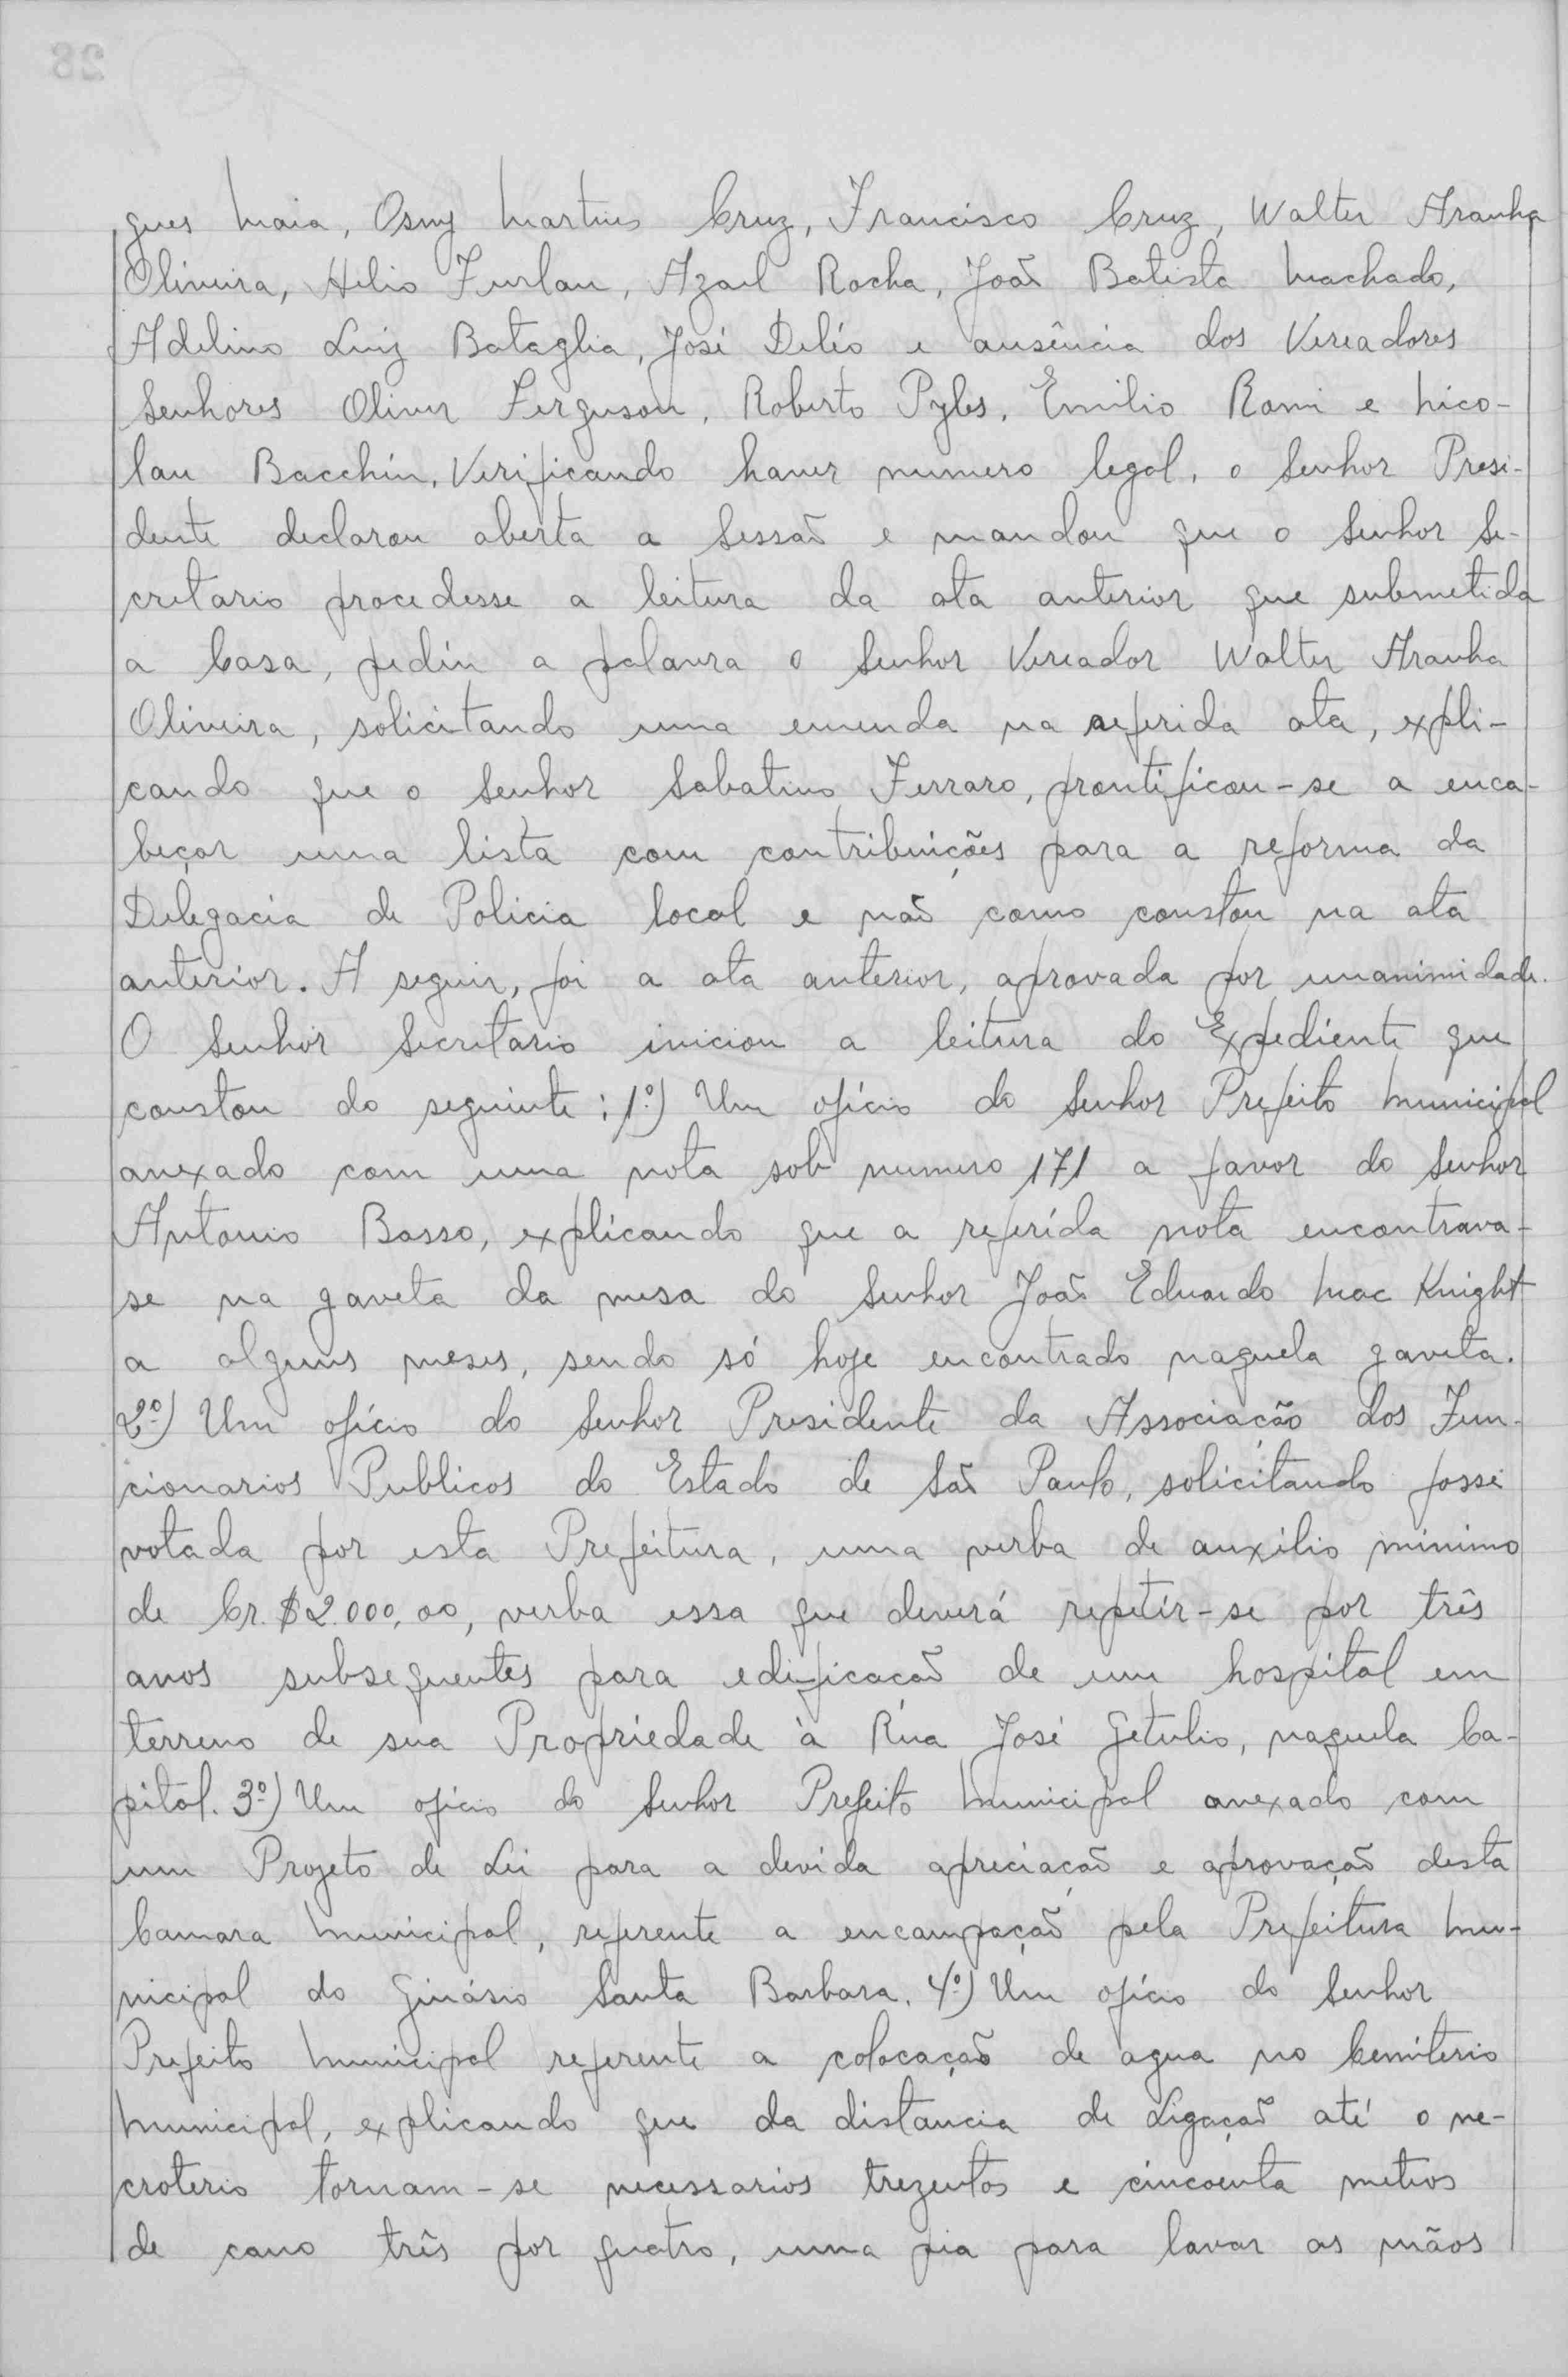 gues Maia, Osmy Martins Cruz, Francisco Cruz, Walter Aranha
Oliveira, Helio Furlan, Azael Rocha, João Batista Machado,
Adelino Luiz Bataglia, José Deléo e ausência dos Vereadores
Senhores Oliver Ferguson, Roberto Pyles, Emilio Romi e Nico-
lau Bacchin. Verificando haver numero legal, o Senhor Presi-
dente declarou aberta a Sessão e mandou que o Senhor Se-
cretario procedesse a leitura da ata anterior que submetida
a Casa, pediu a palavra o Senhor Vereador Walter Aranha
Oliveira, solicitando uma emenda na referida ata, expli-
cando que o Senhor Sabatino Ferraro, prontificou-se a enca-
beçar uma lista com contribuições para a reforma da
Delegacia de Policia local e não como constou na ata
anterior. A seguir, foi a ata anterior, aprovada por unanimidade.
O Senhor Secretario iniciou a leitura do Expediente que
constou do seguinte: 1º) Um ofício do Senhor Prefeito Municipal
anexado com uma nota sob numero 171 a favor do Senhor
Antonio Basso, explicando que a referida nota encontrava-
se na gaveta da mesa do Senhor João Eduardo Mac Knight
a alguns meses, sendo só hoje encontrado naquela gaveta.
2º) Um ofício do Senhor Presidente da Associação dos Fun-
cionarios Publicos do Estado de São Paulo, solicitando fosse
votada por esta Prefeitura, uma verba de auxilio minimo
de Cr.$2.000,00, verba essa que deverá repetir-se por três
anos subsequentes para edificacão de um hospital em
terreno de sua Propriedade à Rua José Getulio, naquela Ca-
pital. 3º) Um ofício do Senhor Prefeito Municipal anexado com
um Projeto de Lei para a devida apreciação e aprovação desta
Camara Municipal, referente a encampação pela Prefeitura Mu-
nicipal do Ginásio Santa Barbara. 4º) Um ofício do Senhor
Prefeito Municipal referente a colocação de agua no Cemiterio
Municipal, explicando que da distancia de Ligação até o ne-
croterio tornam-se necessarios trezentos e cincoenta metros
de cano três por quatro, uma pia para lavar as mãos